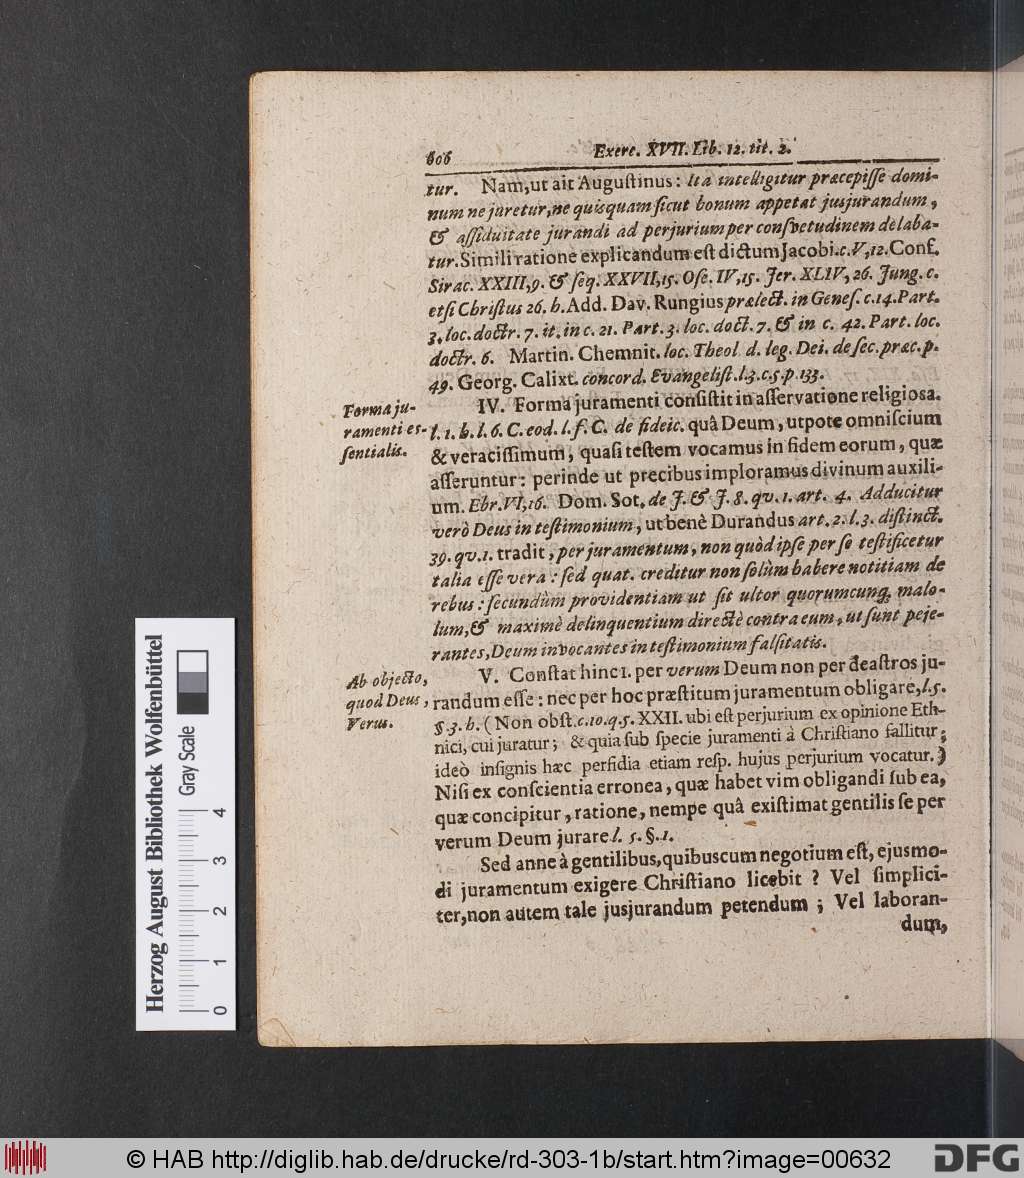 606 Exerc. XVII. Lib. 12. tit. 2.
tur. Nam, ut ait Augustinus: Ita intelligitur præcepisse domi-
num ne juretur, ne quisquam sicut bonum appetat jusjurandum,
& assiduitate jurandi ad perjurium per consvetudinem delaba-
tur. Simili ratione explicandum est dictum Jacobi. c. V, 12. Conf.
Sirac. XXIII, 9. & seq. XXVII, 15. Ose. IV, 15. Jer. XLIV, 26. Jung. c.
etsi Christus 26. h. Add. Dav. Rungius prælect. in Genes. c. 14. Part.
3. loc. doctr. 7. it. in c. 21. Part. 3. loc. doct. 7. & in c. 42. Part. loc.
doctr. 6. Martin. Chemnit. loc. Theol d. leg. Dei. de sec. præc. p.
49. Georg. Calixt. concord. Evangelist. l. 3. c. 5. p. 133.
Forma ju-
ramenti es-
sentialis.
IV. Forma juramenti consistit in asservatione religiosa.
l. 1. h. l. 6. C. eod. l. f. C. de fideic. quâ Deum, utpote omniscium
& veracissimum, quasi testem vocamus in fidem eorum, quæ
asseruntur: perinde ut precibus imploramus divinum auxili-
um. Ebr. VI, 16. Dom. Sot. de J. & J. 8. qv. 1. art. 4. Adducitur
verò Deus in testimonium, ut benè Durandus art. 2. l. 3. distinct.
39. qv. 1. tradit, per juramentum, non quòd ipse per se testificetur
talia esse vera: sed quat. creditur non solùm habere notitiam de
rebus: secundùm providentiam ut sit ultor quorumcunq; malo-
lum, & maximè delinquentium directè contra eum, ut sunt peje-
rantes, Deum invocantes in testimonium falsitatis.
Ab objecto,
quod Deus,
Verus.
V. Constat hinc 1. per verum Deum non per deastros ju-
randum esse: nec per hoc præstitum juramentum obligare, l. 5.
§ 3. h. (Non obst. c. 10. q. 5. XXII. ubi est perjurium ex opinione Eth-
nici, cui juratur; & quia sub specie juramenti à Christiano fallitur;
ideò insignis hæc perfidia etiam resp. hujus perjurium vocatur.)
Nisi ex conscientia erronea, quæ habet vim obligandi sub ea,
quæ concipitur, ratione, nempe quâ existimat gentilis se per
verum Deum jurare l. 5. §. 1.
Sed anne à gentilibus, quibuscum negotium est, ejusmo-
di juramentum exigere Christiano licebit? Vel simplici-
ter, non autem tale jusjurandum petendum; Vel laboran-
dum,
Herzog August Bibliothek Wolfenbüttel
Gray Scale
0 1 2 3 4
© HAB http://diglib.hab.de/drucke/rd-303-1b/start.htm?image=00632
DFG